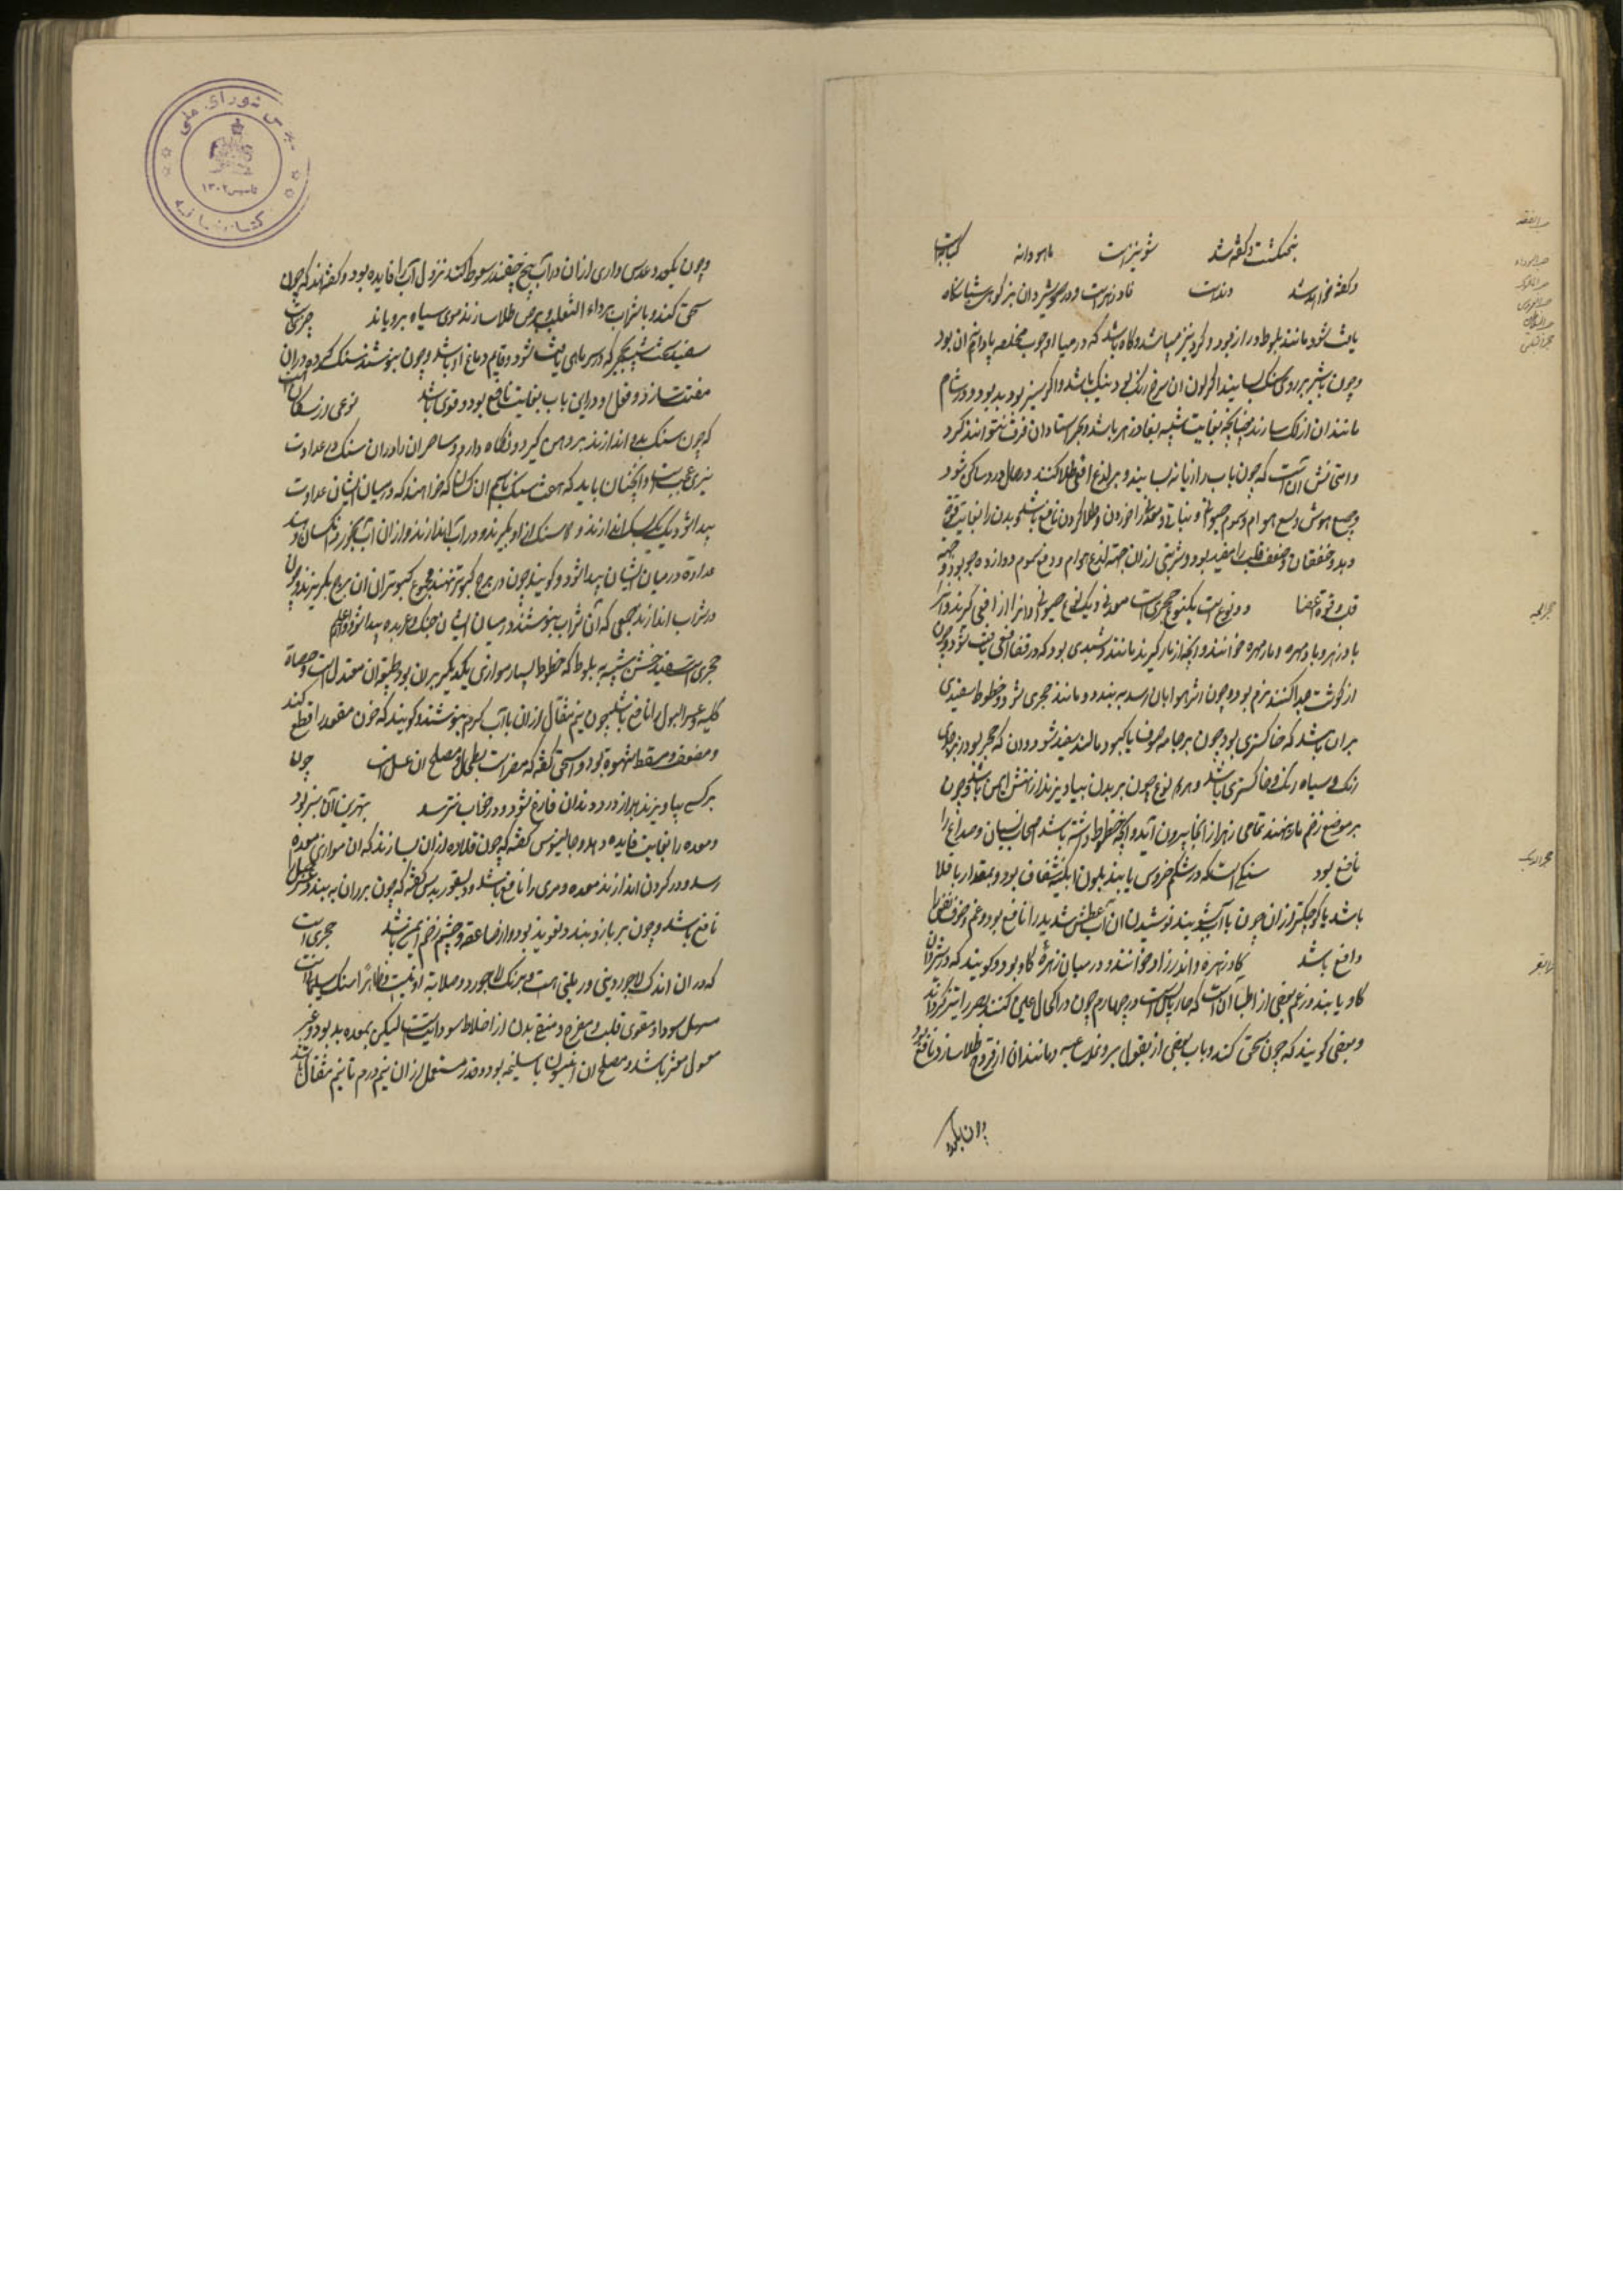 پنجنکشت و گفته شد شونیزاست ماهودانه کبابه است
و گفته خواهد شد و نداست فادزهراست و در
یافت شود مانند بلوط دراز بود و کرد نیز میباشد و کاه باشد که در میان او چوب مخلصه یا دانه آن بود
و چون با شیر بر روی سنک بسایند اگر لون آن سرخ رنک بود نیک باشد و اگر سبز بود بد بود و در شام
مانند آن از لک سازند چنانچه بغایت شبیه بفادزهر باشد و بجز استادان فرق نتوانند کرد
و امتحانش آنست که چون با آب رازیانه بسایند و بر لدغ افعی طلا کنند در حال درد ساکن شود
و جمیع هوش و لسع هوام و سموم حیوانی و نباتی و معدنی را خوردن و طلا کردن نافع باشد و بدن را بغایت قوة
دهد و خفقان و ضعف قلب را مفید بود و شربتی از آن جهت لدغ هوام و دفع سموم دوازده جو بود و جهة
قلب و قوة اعضا دو نوع است یکنوع حجری است معدنی و یک نوع حیوانی و آنرا از افعی گیرند و آنرا
پادزهر و مار مهره خوانند و آنچه از مار گیرند مانند بود که در قفا افعی یافت شود و چون
از گوشت جدا کنند نرم بود و چون اثر هوا بان رسد به بندد و مانند حجری شود و خطوط سفیدی
بران باشد که خاکستری بود چون بر جامه صوف یا کبود مالند سفید شود و آن که حجر بود
رنک و سیاه رنک و خاکستری باشد و هردو نوع چون بر بدن بیاویزند از نهش ایمن باشد و چون
بر موضع زخم مار نهند تمامی زهر از آنجا بیرون آید و آنچه خطوط داشته باشد اصحاب نسیان و صداع را
نافع بود سنگی است که در شکم خروس یابند بلون آبکینه شفاف بود و بمقدار باقلا
باشد یا کوچکتر از آن چون با آب بشویند نوشیدن آن آب عطش شدید را نافع بود و غم و خوف نفس را
دافع باشد گاو زهره و اندرزا خوانند و در میان زهرهٔ گاو بود و گویند که در شیردان
گاو یابند و زعم بعضی از اطبا آن است که حار یابس است در چهارم چون در اکحال عین کنند بصر را تیز گرداند
و بعضی گویند که چون سحق کنند و با آب بعضی از بقول بر و نمله ساعیه و مانند آن از قروح طلا سازند نافع بود
چون بگیرد
حجر الحیه
حجر الدیک
حجر البقر
مجلس شورای ملی
تاسیس ۱۳۰۲
کتابخانه
و چون بگیرد عدس واری از آن در آب بیخ چقندر سعوط کنند نزول آب را فایده بود و گفته اند که چون
سحق کنند و با شراب بر داء الثعلب و برص طلا سازند موی سیاه برویاند حجریست
سفید سخت شبیه بحجر که در سر ماهی یافت شود و قایم دماغ او باشد و چون بنوشند سنک گرده در آن
مفتت سازد و فعل او در این باب بغایت نافع بود و قوی باشد نوعی از سکان است
که چون سنک بدو اندازند بر دهن گیرد و نگاه دارد و ساحران را در آن سنک در عداوت
سری عجیب است و آنچنان باید که هفت سنک بنام آن کسان که خواهند که در میان ایشان عداوت
پیدا شود یک یک بسک اندازند و از آن دو سنک از او بگیرند و در آب اندازند و از آن آب بخورد آنکسان دهند
عداوة در میان ایشان پیدا شود و گویند چون در برج کبوتر نهند مجموع کبوتران از آن برج بگریزند و چون
در شراب اندازند جمعی که آن شراب بنوشند در میان ایشان جنک و عربده پیدا شود والله اعلم
حجری است سفید خشن شبیه به بلوط که خطوط بسیار موازی یکدیگر بر آن بود طبیعت آن معتدل است و حصاة
کلیه و عسر البول را نافع باشد چون نیم مثقال از آن با آب گرم بنوشند و گویند که خون معقود را قطع کند
و مضعف و مسقط شهوة بود و اسحق گفته که مضر است بطحال و مصلح آن عسل است چون
بر کسی بیاویزند از درد دندان فارغ شود و در خواب نترسد بهترین آن سبز بود
و معده را بغایت فایده دهد و جالینوس گفته که چون قلاده از آن بسازند که آن موازی معده
رسد و در گردن اندازند معده و مری را نافع باشد و دیسقوریدس گفته که چون بر ران به بندند عسر
نافع باشد و چون بر بازو بندند تعویذ بود و از صاعقه و چشم زخم ایمن باشد حجری است
که در آن اندک لاجوردی و رملی هست و برنک لاجورد و صلابة او نیست و ظاهرا سنک سلیمانی است
مسهل سودا و مقوی قلب و مفرح و منقی بدن از اخلاط سوداویست لیکن بمعده بد بود و غیر
مغسول مغثی باشد و مصلح آن انیسون یا سلیخه بود و قدر مستعمل از آن نیم درم تا نیم مثقال باشد